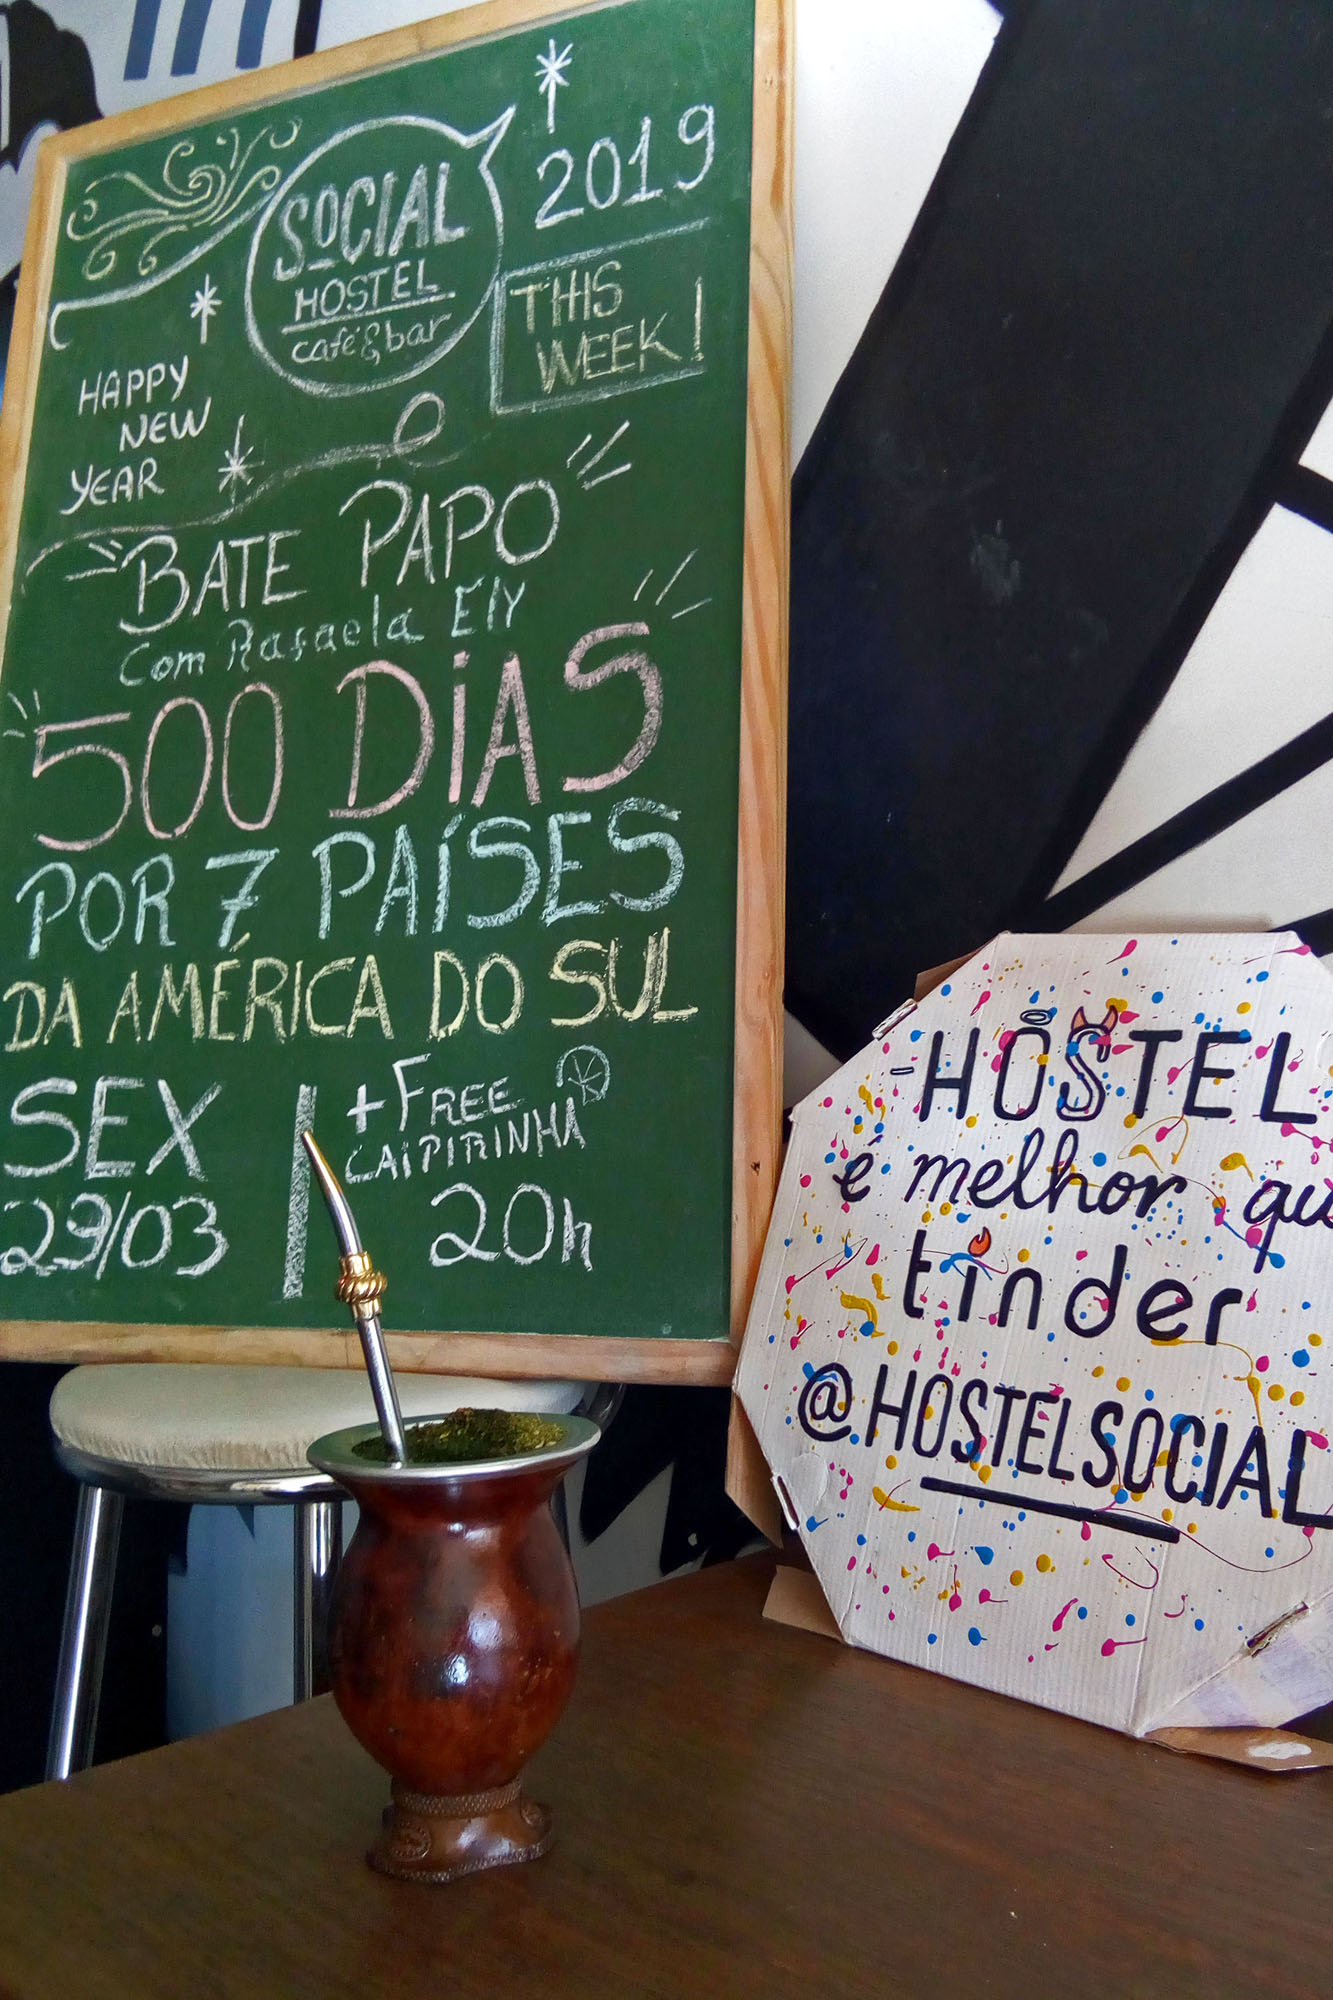 SOCIAL
HOSTEL
café & bar
2019
THIS
WEEK!
HAPPY
NEW
YEAR
BATE PAPO
Com Rafaela Ely
500 DIAS
POR 7 PAÍSES
DA AMÉRICA DO SUL
SEX
29/03
+ FREE
CAIPIRINHA
20h
HOSTEL
é melhor qu
tinder
@HOSTELSOCIAL